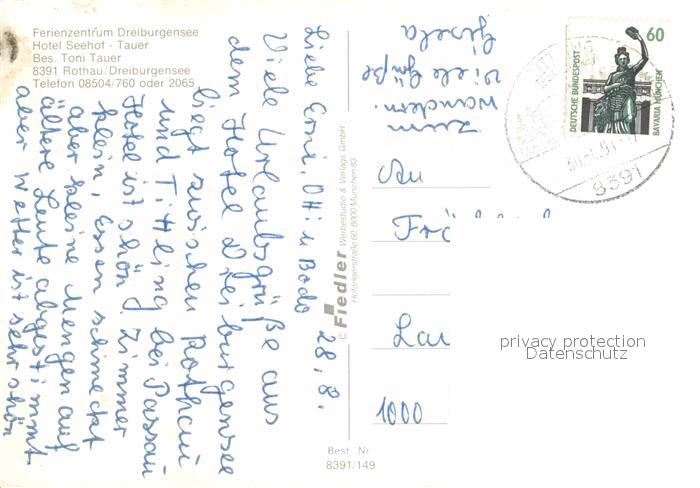 Ferienzentrum Dreiburgensee
Hotel Seehof - Tauer
Bes. Toni Tauer
8391 Rothau/Dreiburgensee
Telefon 08504/760 oder 2065
Liebe Erni, Otti u Bodo 28.8.
Viele Urlaubsgrüße aus
dem Hotel Dreiburgensee
liegt zwischen Rothau
und Tittling bei Passau
Hotel ist schön. Zimmer
klein, Essen schmeckt
aber kleine Mengen auf
ältere Leute abgestimmt
aber Wetter ist sehr schön
zum
wandern.
Viele Grüße
Gisela
© Fiedler Werbestudio & Verlags GmbH
Hofangerstraße 60, 8000 München 83
Best. Nr
8391/149
60
DEUTSCHE BUNDESPOST
BAVARIA MÜNCHEN
8391
An
1000
privacy protection
Datenschutz